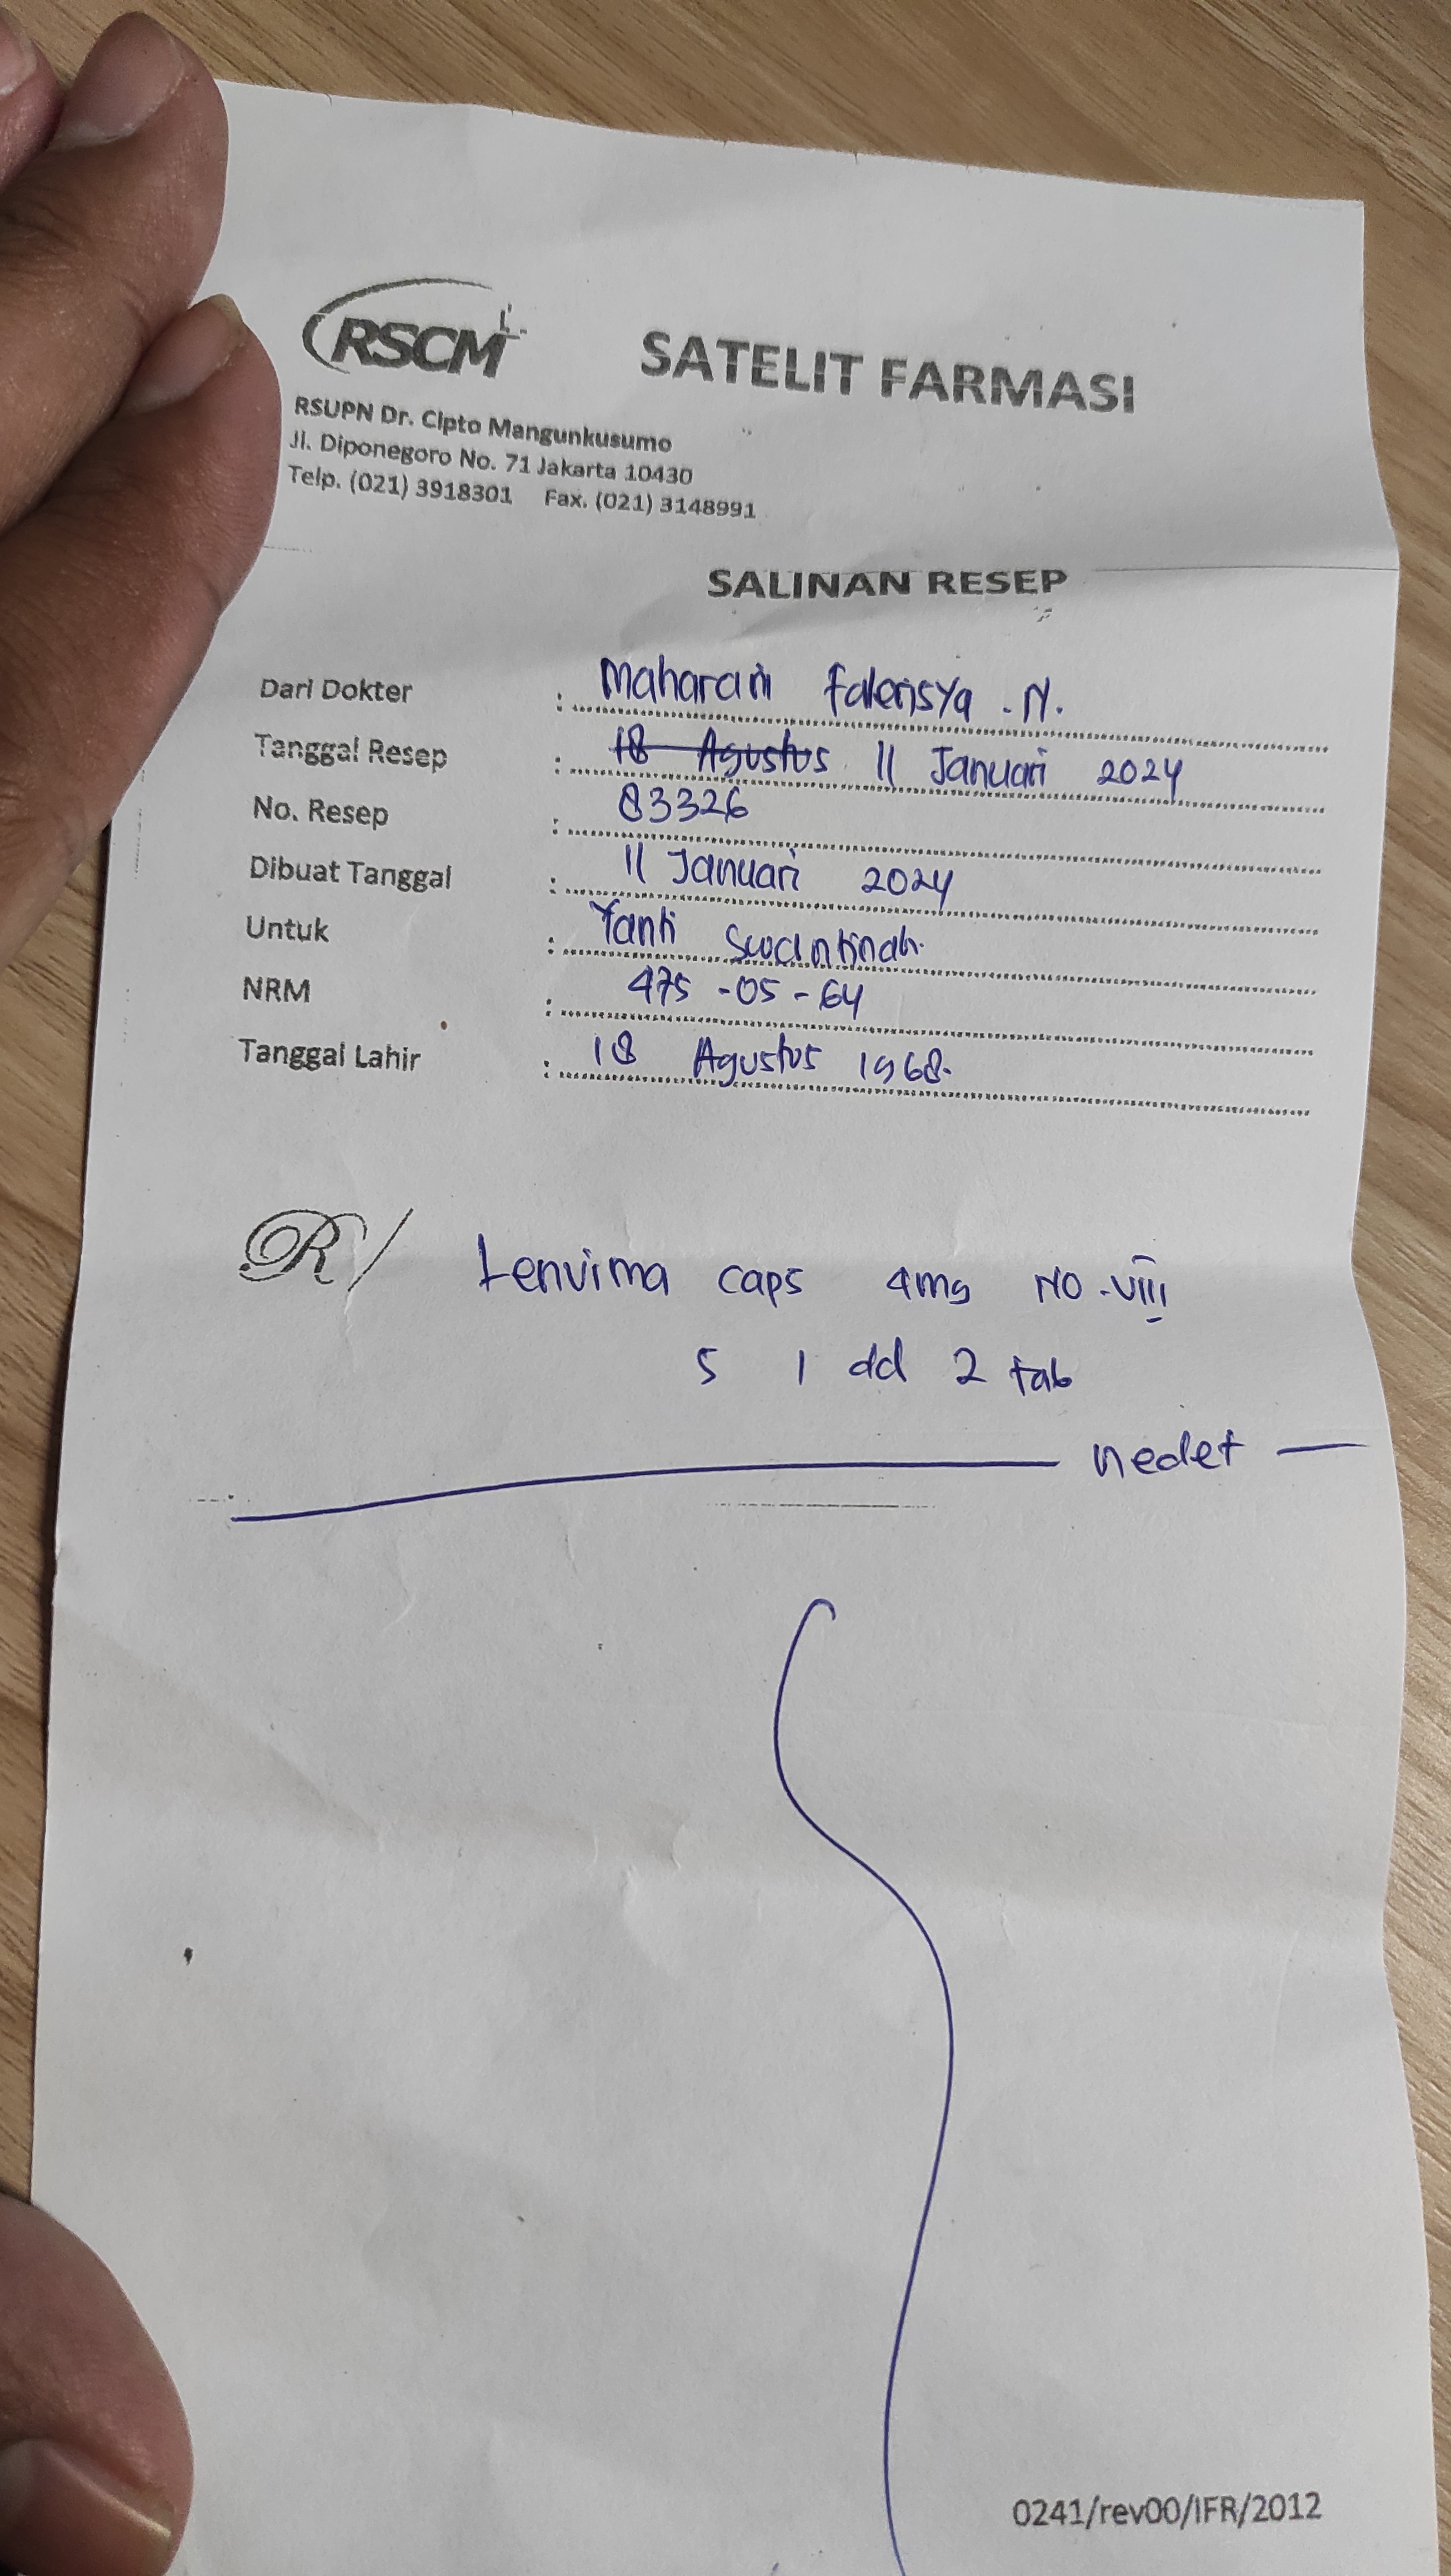 RSCM
SATELIT FARMASI
RSUPN Dr. Cipto Mangunkusumo
Jl. Diponegoro No. 71 Jakarta 10430
Telp. (021) 3918301 Fax. (021) 3148991
SALINAN RESEP
Dari Dokter : Maharani Falerisya . N.
Tanggal Resep : 18 Agustus 11 Januari 2024
No. Resep : 83326
Dibuat Tanggal : 11 Januari 2024
Untuk : Yanti Swantinah.
NRM : 475 - 05 - 64
Tanggal Lahir : 18 Agustus 1968.
R/ Lenvima caps 4mg NO. VIII
S 1 dd 2 tab
nedet
0241/rev00/IFR/2012